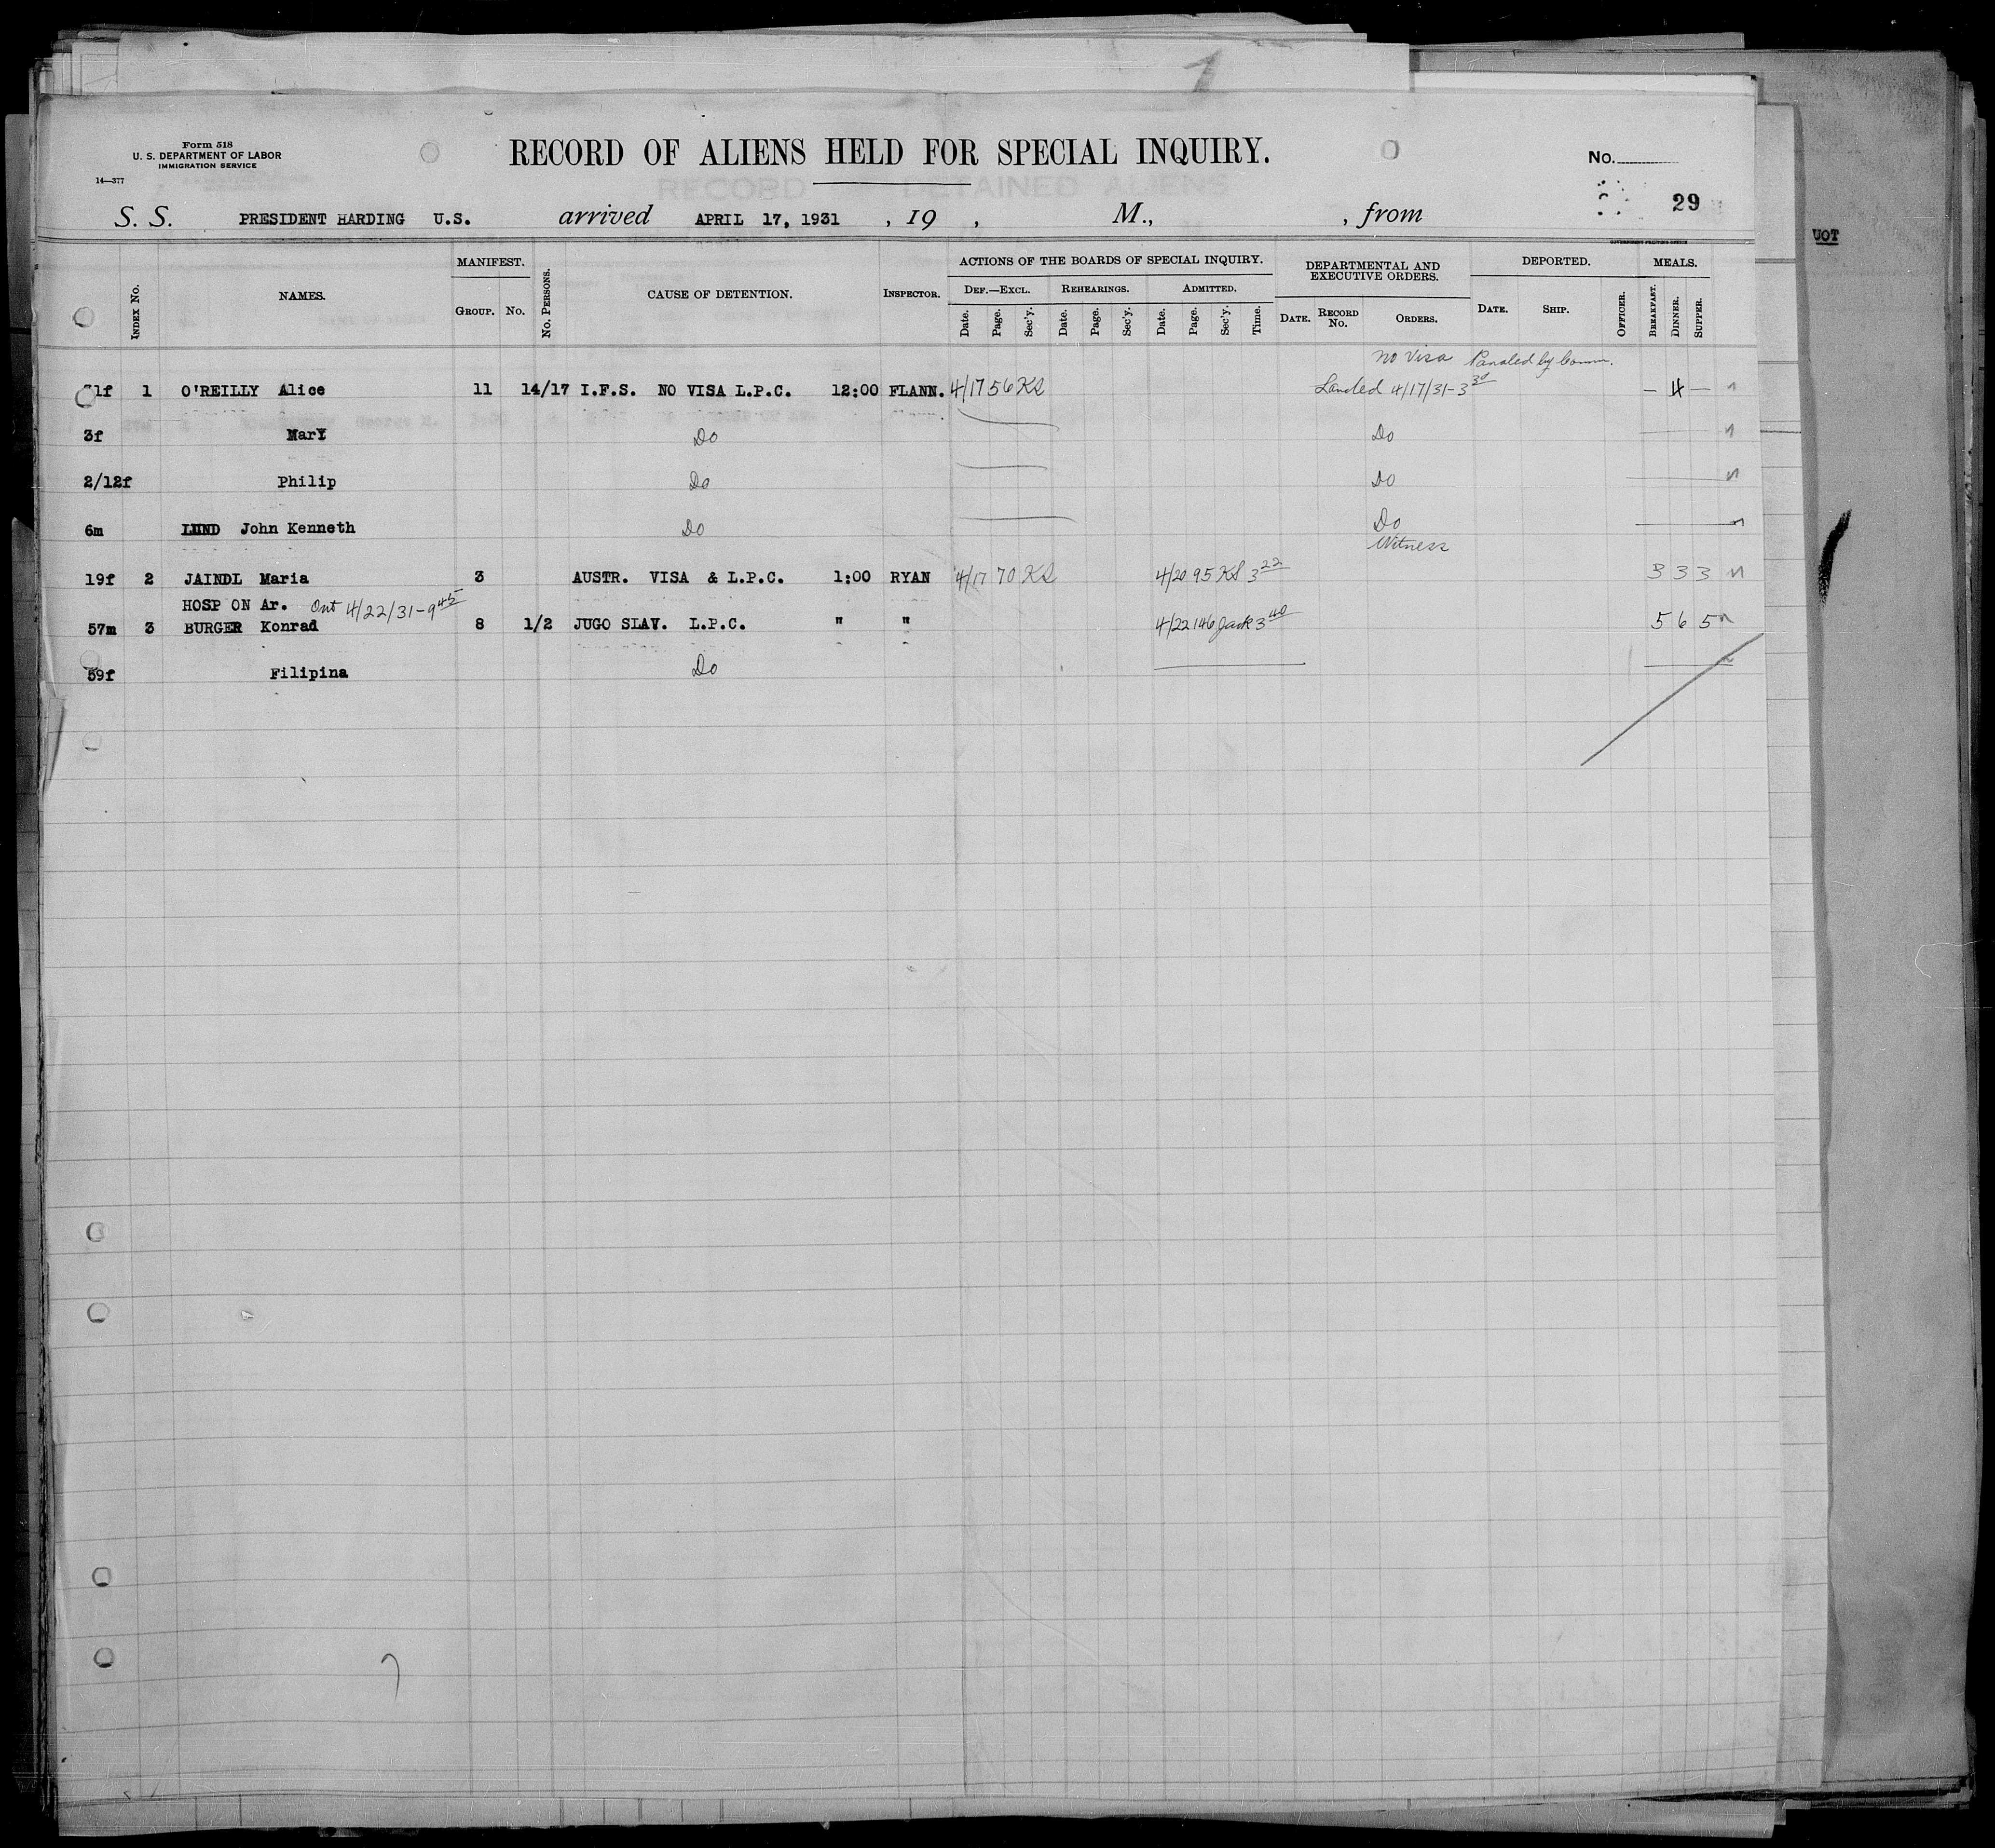 Form 518
U. S. DEPARTMENT OF LABOR
IMMIGRATION SERVICE
14—377
RECORD OF ALIENS HELD FOR SPECIAL INQUIRY.
No.
29
S. S. PRESIDENT HARDING U.S. arrived APRIL 17, 1931 , 19 , M., , from
GOVERNMENT PRINTING OFFICE
UOT
INDEX NO. NAMES. MANIFEST. GROUP. NO. NO. PERSONS. CAUSE OF DETENTION. INSPECTOR. ACTIONS OF THE BOARDS OF SPECIAL INQUIRY. DEF.—EXCL. Date. Page. Sec'y. REHEARINGS. Date. Page. Sec'y. ADMITTED. Date. Page. Sec'y. Time. DEPARTMENTAL AND EXECUTIVE ORDERS. DATE. RECORD NO. ORDERS. DEPORTED. DATE. SHIP. OFFICER. MEALS. BREAKFAST. DINNER. SUPPER.
No Visa by Comm.
1f 1 O'REILLY Alice 11 14/17 I.F.S. NO VISA L.P.C. 12:00 FLANN. 4/17 56 KS Landed 4/17/31-3 30 — 4 —
3f Mary Do Do
2/12f Philip Do Do
6m LUND John Kenneth Do Do
Witness
19f 2 JAINDL Maria 3 AUSTR. VISA & L.P.C. 1:00 RYAN 4/17 70 KS 4/20 95 KS 3 22 3 3 3
HOSP ON Ar. Out 4/22/31-9 45
57m 3 BURGER Konrad 8 1/2 JUGO SLAV. L.P.C. " " 4/22 146 Jack 3 40 5 6 5
59f Filipina Do